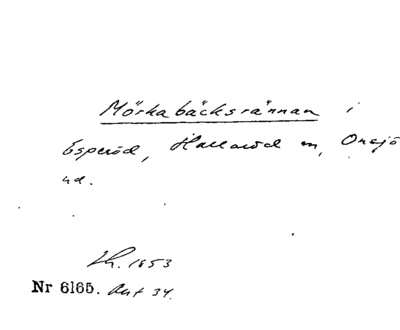 Mörkabäcksrännan i
Esperöd, Hallaröd sn, Onsjö
hd.
Lh. 1853
Nr 6165. Akt 34.